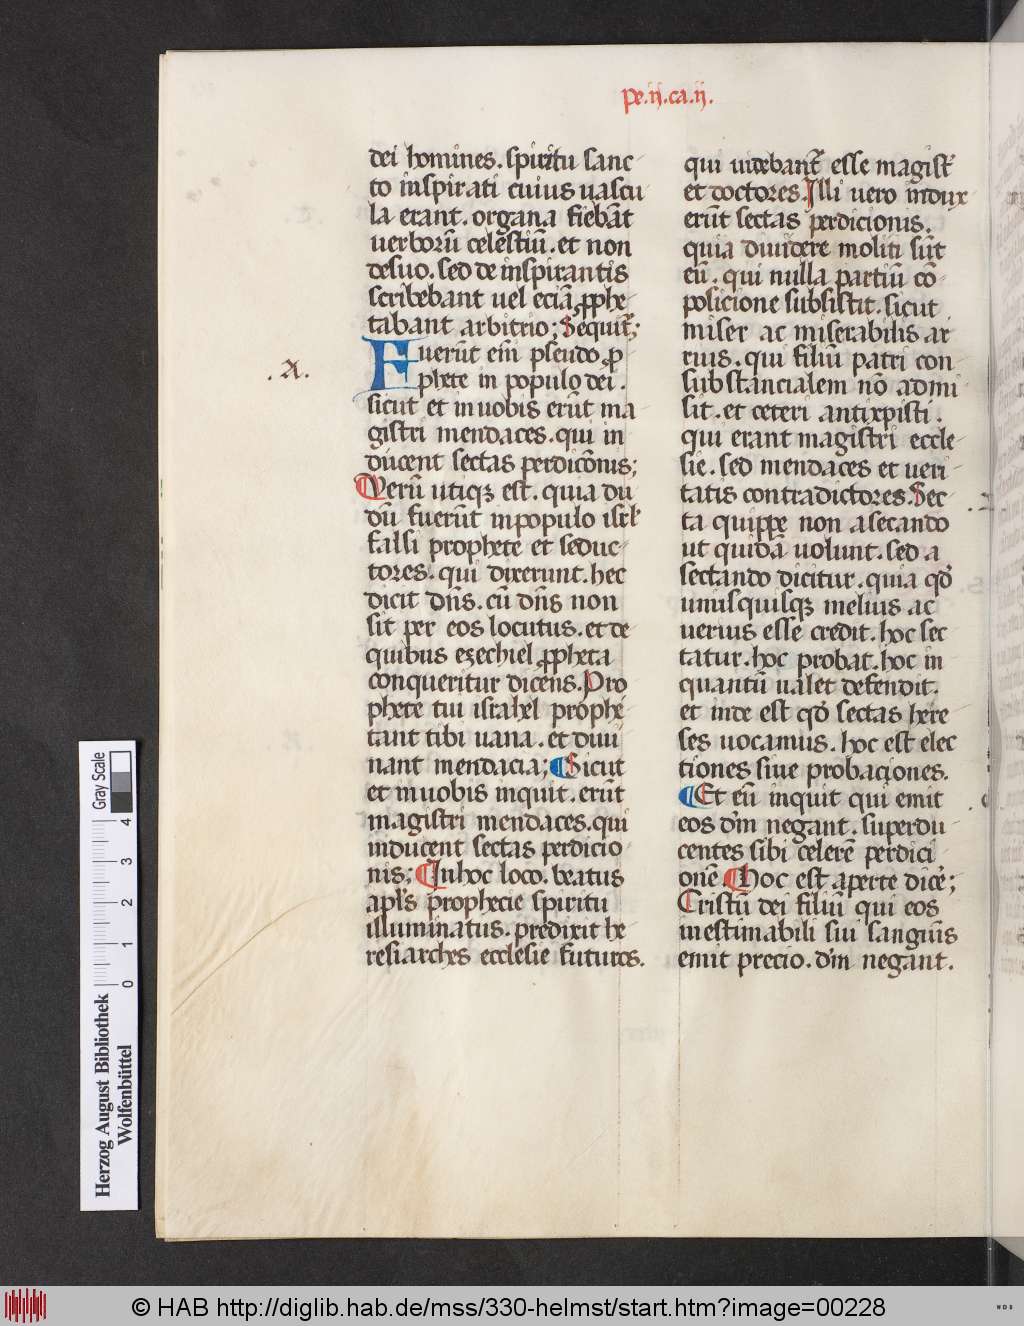 pe.ij.ca.ij.
dei homines. spiritu sanc
to inspirati cuius uascu
la erant. organa fiebāt
uerborū celestiū. et non
desuo. sed de inspirantis
scribebant uel eciā prophe
tabant arbitrio; Sequit̄;
.A.
Fuerūt eīm pseudo pro
phete in populo dei.
sicut et in uobis erūt ma
gistri mendaces. qui in
ducent sectas perdicōnis;
Uerū utiqꝫ est. quia du
dū fuerūt inpopulo isrl̄
falsi prophete et seduc
tores. qui dixerunt. hec
dicit dn̄s. cū dn̄s non
sit per eos locutus. et de
quibus ezechiel ꝓpheta
conqueritur dicens. Pro
phete tui israhel prophe
tant tibi uana. et diui
nant mendacia; Sicut
et inuobis inquit. erūt
magistri mendaces. qui
inducent sectas perdicio
nis; Inhoc loco. beatus
apl̄s prophecie spiritu
illuminatus. predixit he
resiarches ecclesie futuros.
qui uidebant̄ esse magist̄
et doctores. Illi uero indux
erūt sectas perdicionis.
quia diuidere moliti sūt
eū. qui nulla partiū cō
posicione subsistit. sicut
miser ac miserabilis ar
rius. qui filiū patri con
substancialem nō admi
sit. et ceteri antixpisti.
qui erant magistri eccle
sie. sed mendaces et ueri
tatis contradictores. Sec
ta quippe non asecando
ut quidā uolunt. sed a
sectando dicitur. quia qd̄
unusquisqꝫ melius ac
uerius esse credit. hoc sec
tatur. hoc probat. hoc in
quantū ualet defendit.
et inde est qd̄ sectas here
ses uocamus. hoc est elec
tiones siue probaciones.
Et eū inquit qui emit
eos dm̄ negant. superdu
centes sibi celerē perdici
onē. Hoc est aperte dice᷒;
Cristū dei filiū qui eos
inestimabili sui sanguis
emit precio. dm̄ negant.
Gray Scale
0 1 2 3 4
Herzog August Bibliothek
Wolfenbüttel
© HAB http://diglib.hab.de/mss/330-helmst/start.htm?image=00228